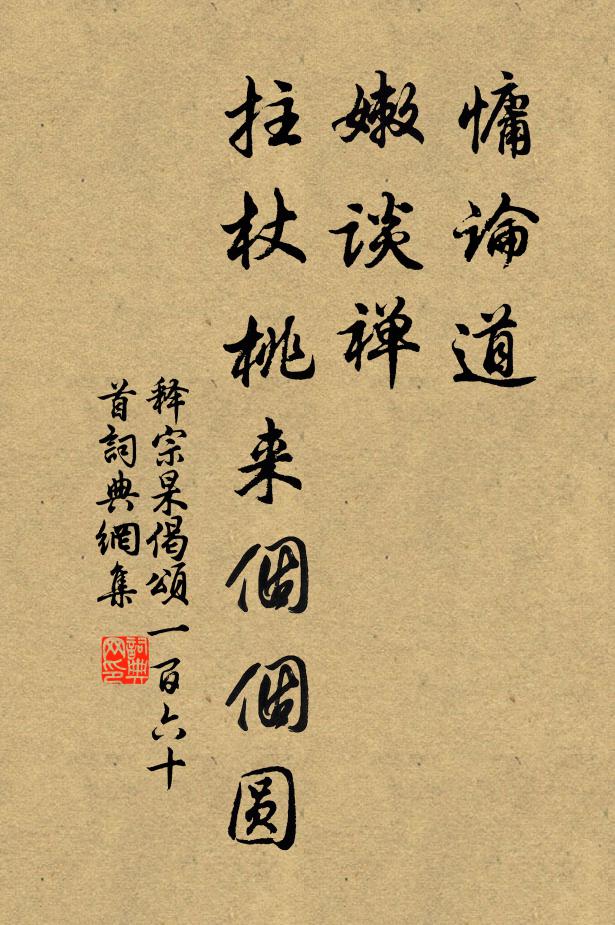 慵论道
嫩谈禅
拄杖桃来個個圆
释宗杲偈颂一百六十
首詞典網集
詞典
网印